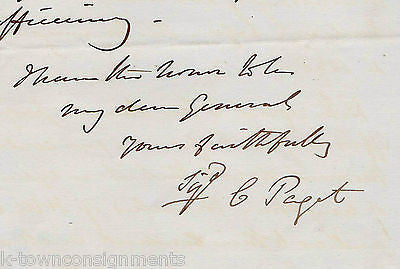 efficiency –
I have the honor to be
my dear General
yours faithfully
Sigd C Paget
k-townconsignments